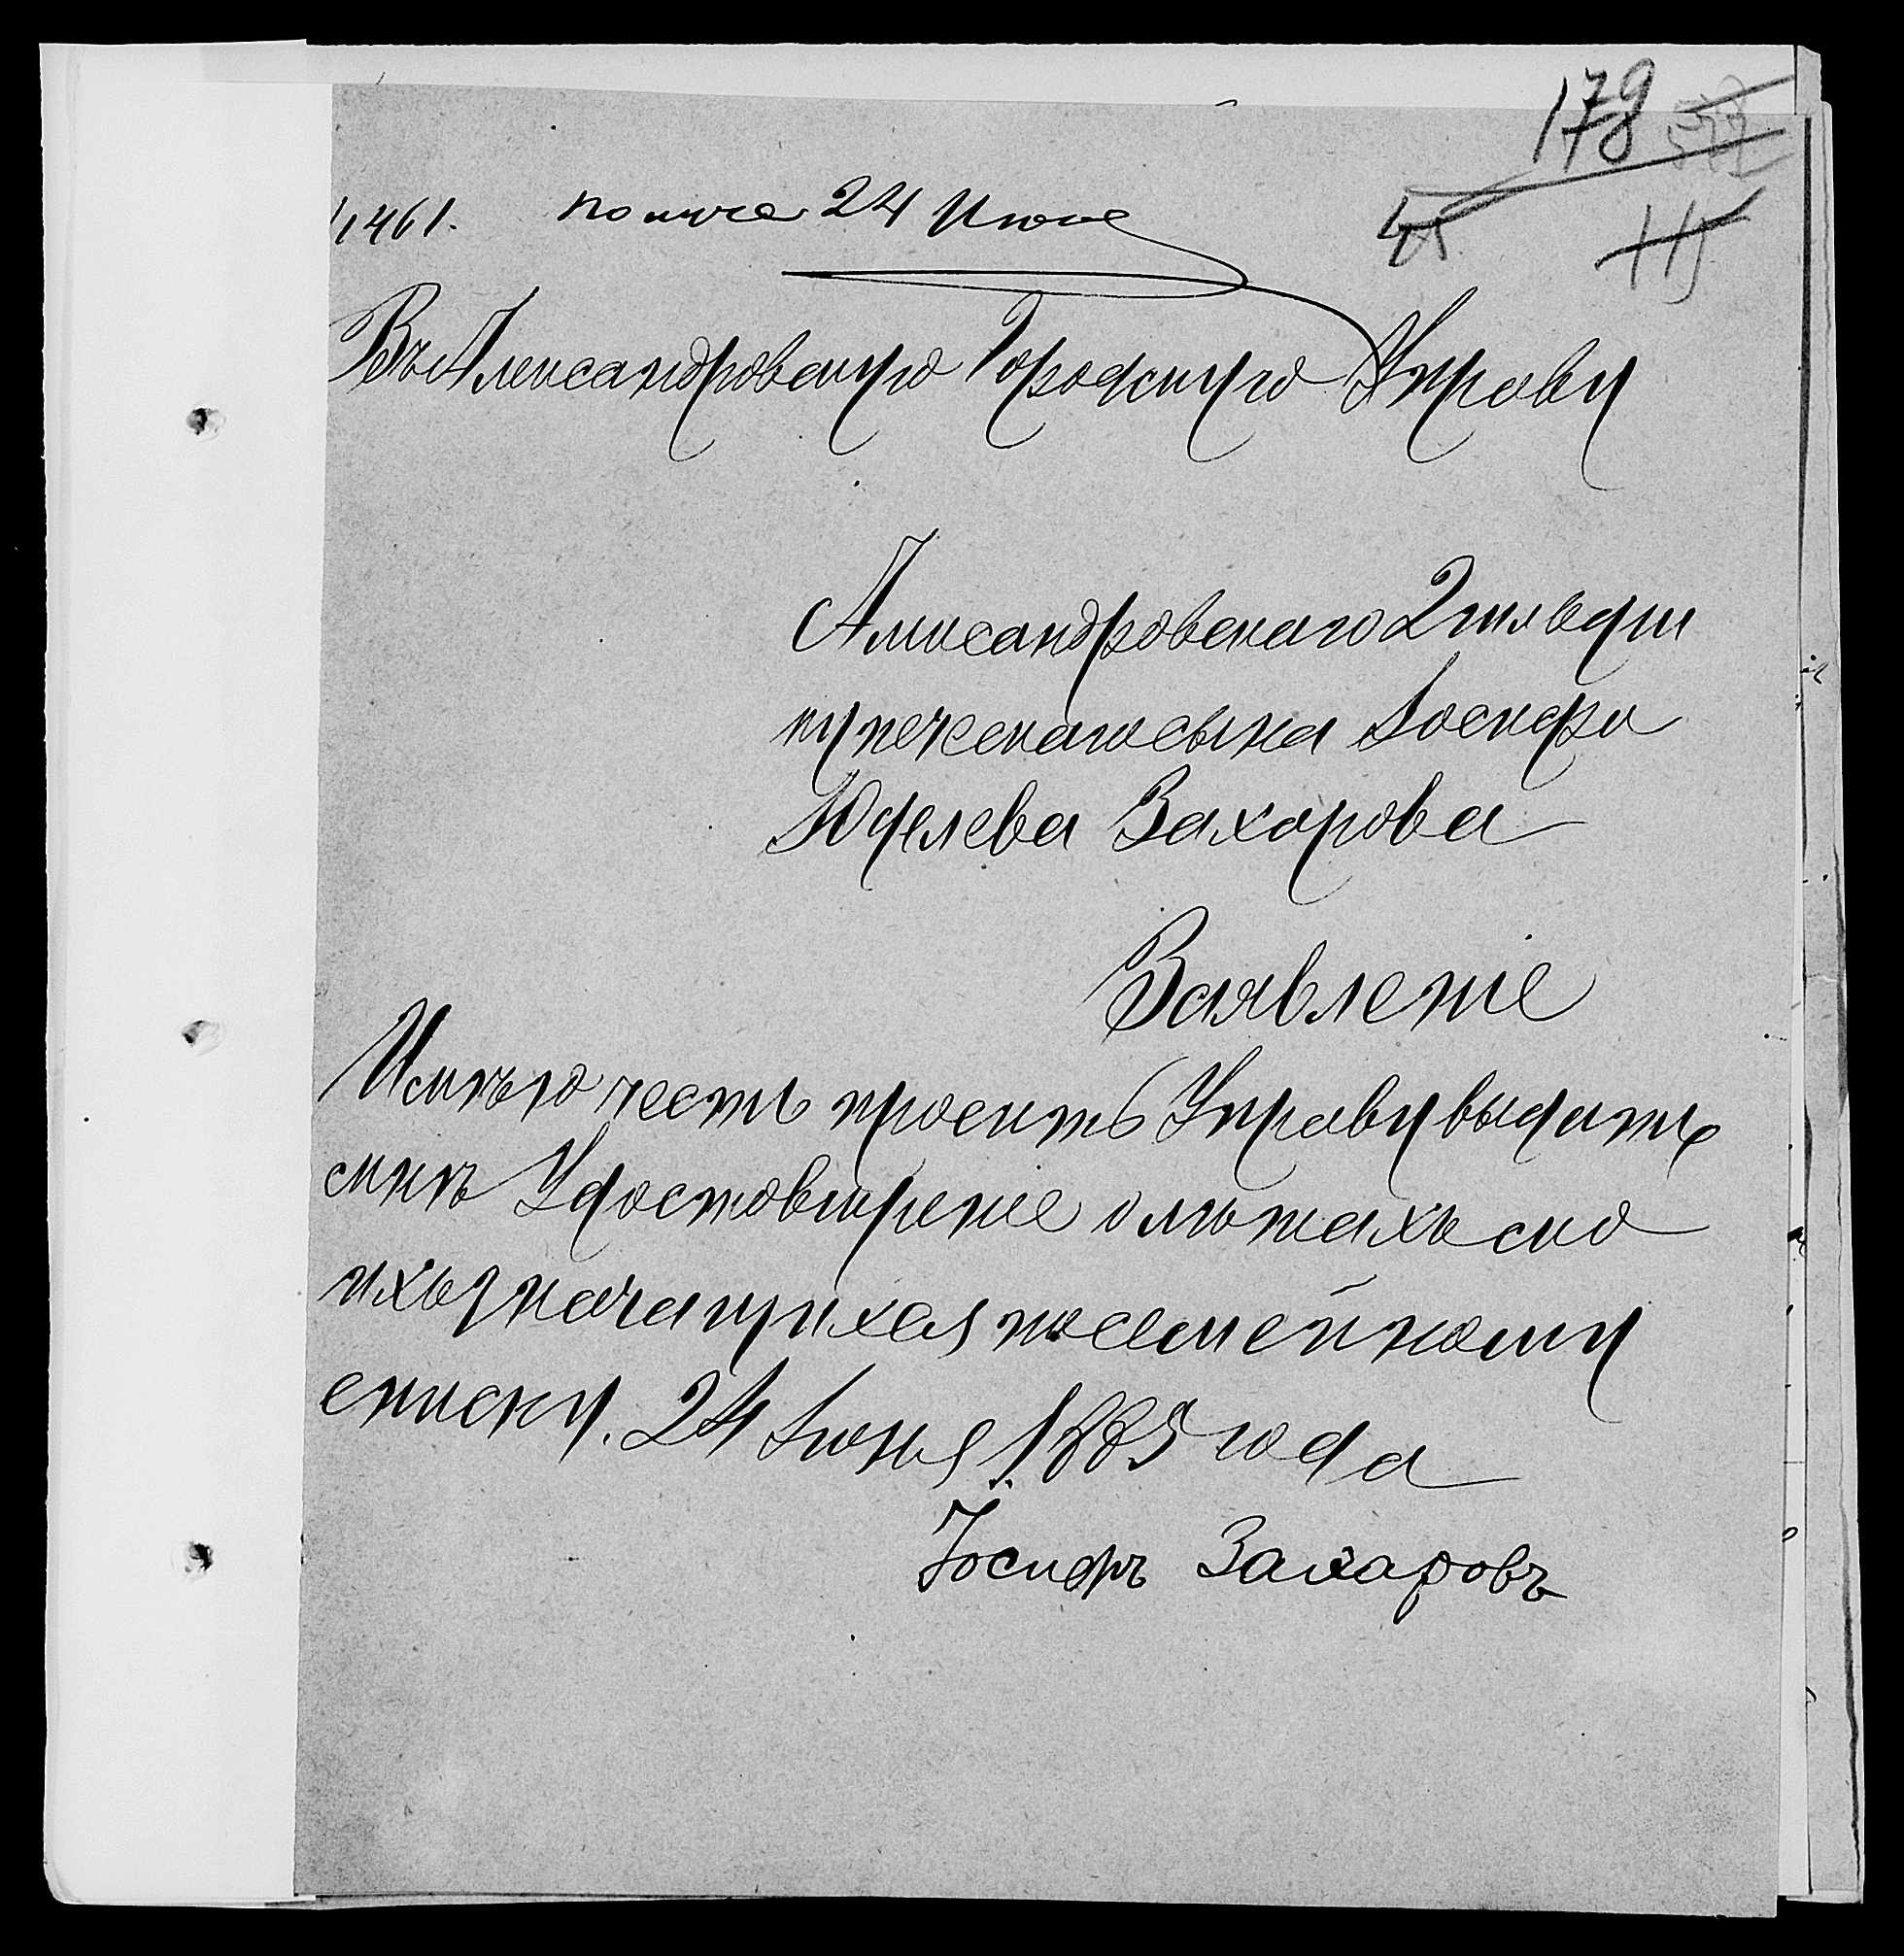 179
178
115
1461. получе 24 Июня
Въ Александровскую Городскую Управу
Александровскаго 2 гильдии
купеческаго сына Іосифа
Юделева Захарова
Заявление
Имѣю честь просить Управу выдать
мнѣ Удостовѣрение о лѣтахъ мо
ихъ значащихся по семейному
списку. 24 Іюня 1885 года
Іосифъ Захаровъ